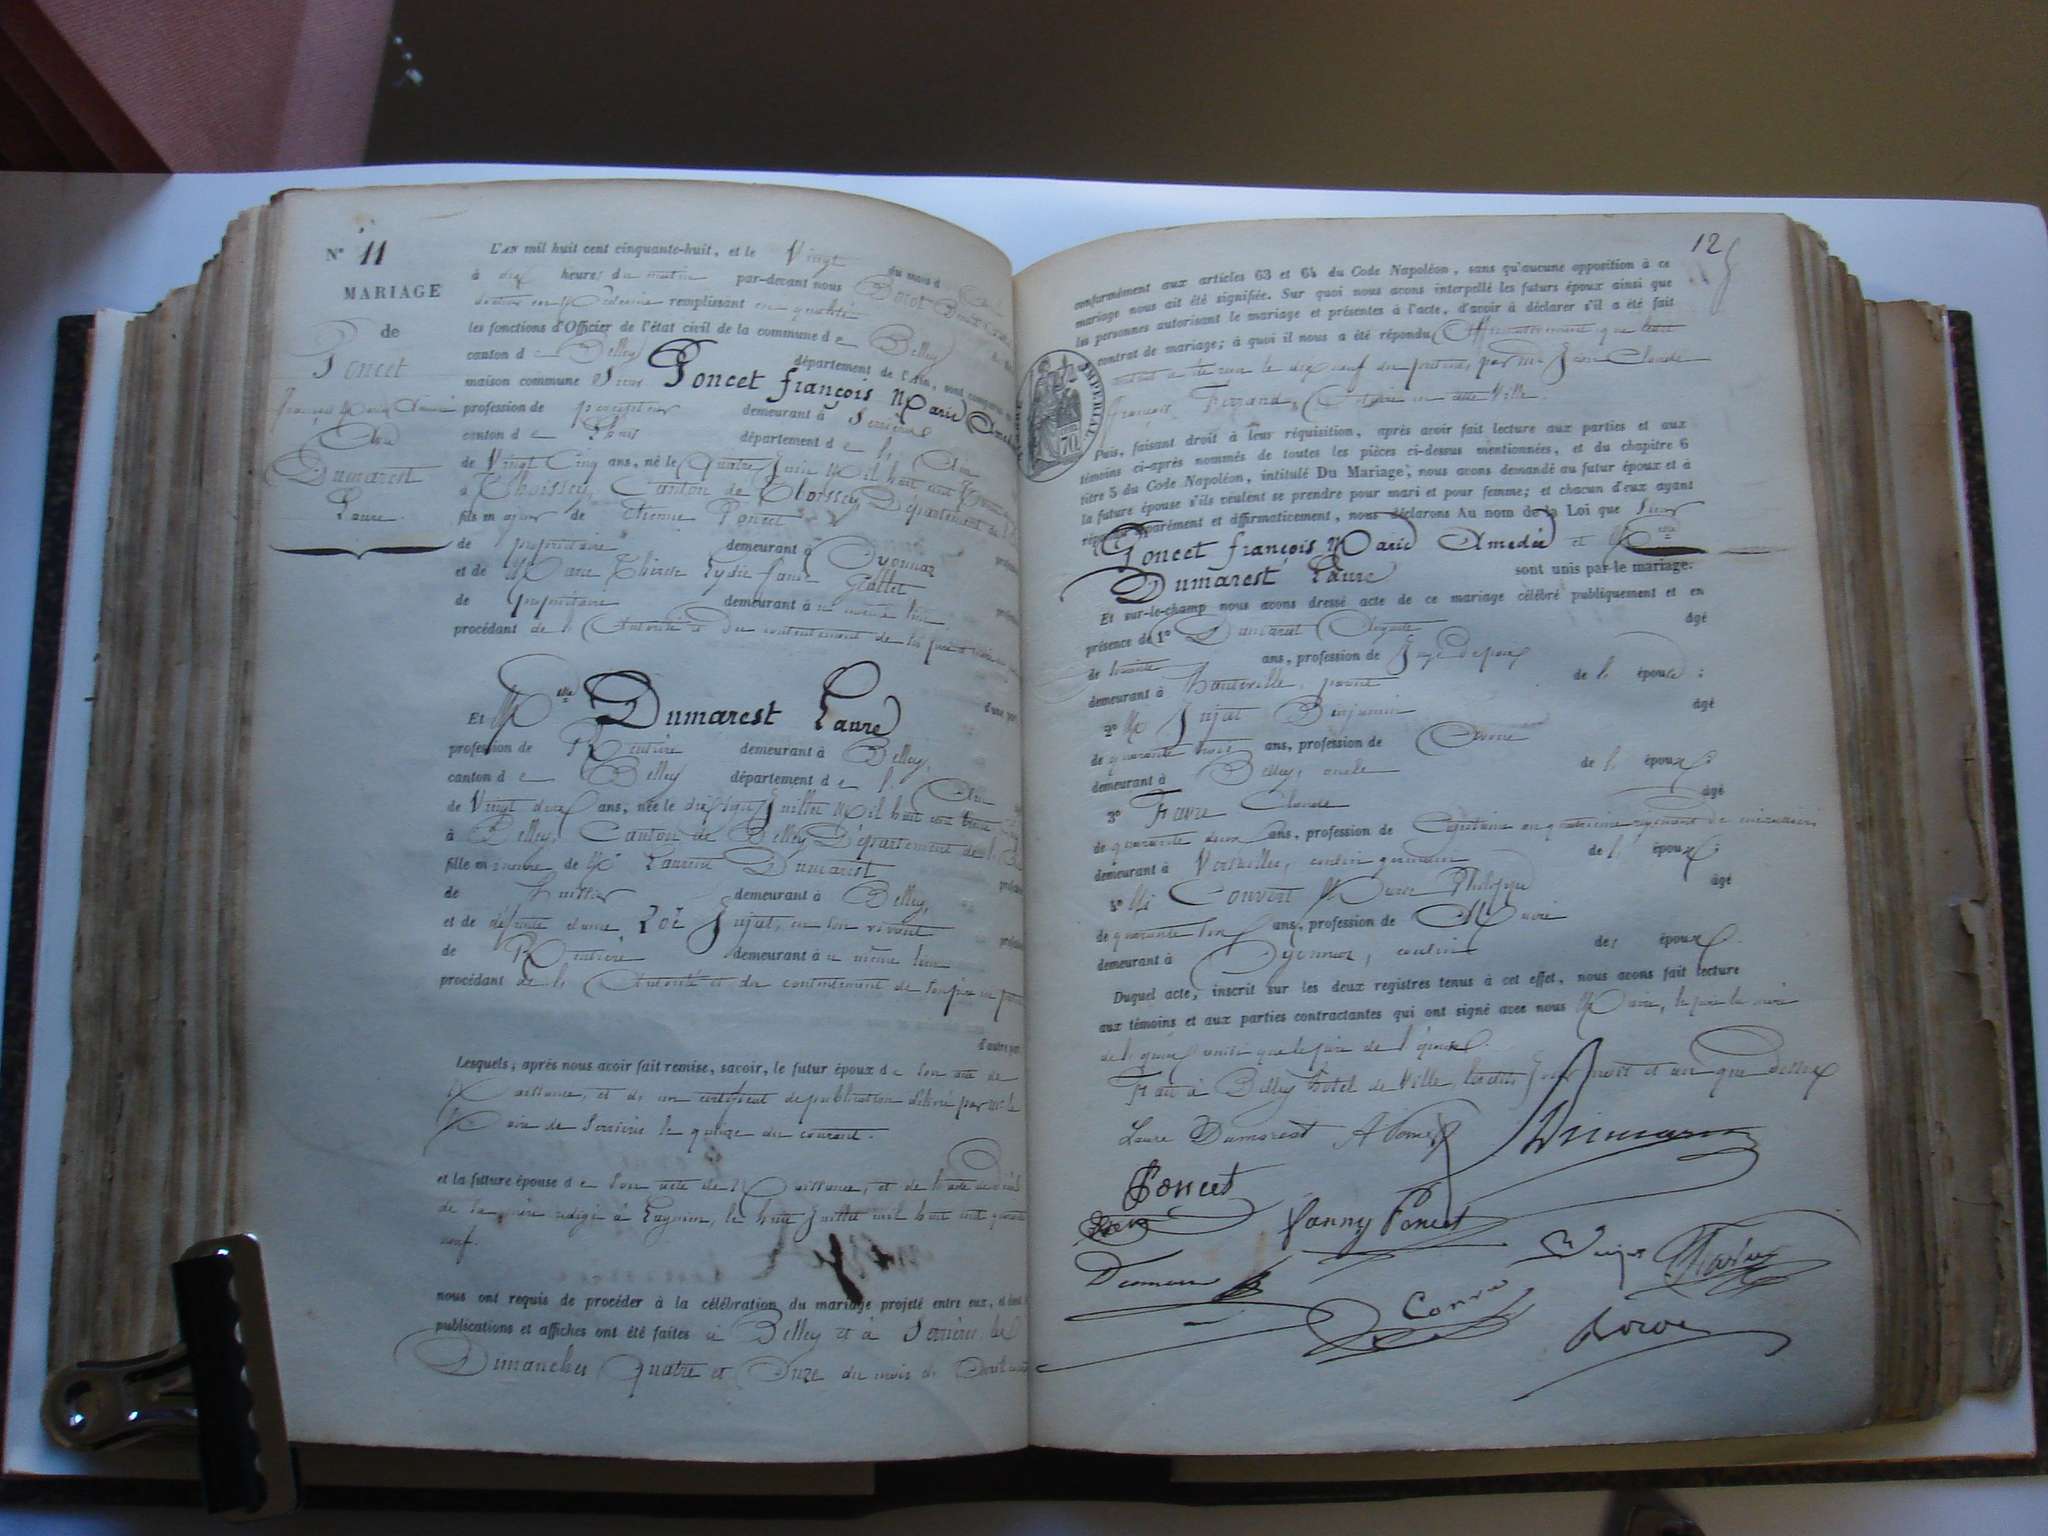 N° 11
MARIAGE
de
Poncet
François Marie Amédée
Et
Dumarest
Laure.
L'AN mil huit cent cinquante-huit, et le Vingt du mois d
à dix heures du matin par-devant nous
docteur en Médecine remplissant en qualité
les fonctions d'Officier de l'état civil de la commune de Belley
canton de Belley département de l'Ain, sont comparus
maison commune Sieur Poncet françois Marie Amédée
profession de percepteur demeurant à Serrières
canton de département de l'Ain
de Vingt Cinq ans, né le Quatre Juin Mil huit cent
à Thoissey, Canton de Thoissey, Département de l'
fils majeur de Etienne Poncet
de propriétaire demeurant à Oyonnax
et de Marie Thérèse Lydie fanie Gallet
de Propriétaire demeurant à u même lieu
procédant de l'Autorité et du contentement de ses père et mère
d'une part
Et Melle Dumarest Laure
profession de Rentière demeurant à Belley,
canton de Belley département de l'Ain
de Vingt deux ans, née le dix sept Juillet Mil huit cent trente
à Belley, Canton de Belley Département de l'
fille mineure de Mr Laurent Dumarest
de huissier demeurant à Belley,
et de défunte dame Zoé Jujat, en son vivant
de Rentière demeurant à u même lieu
procédant de l'Autorité et du contentement de son père
d'autre part
Lesquels, après nous avoir fait remise, savoir, le futur époux de son acte de
Naissance, et d'un certificat de publication délivré par Mr le
Maire de Serrières le quinze du courant.
et la future épouse de son acte de Naissance, et de l'acte de Décès
de sa mère rédigé à Lagnieu, le huit Juillet mil huit cent quarante
neuf.
nous ont requis de procéder à la célébration du mariage projeté entre eux, et dont
publications et affiches ont été faites à Belley et à Serrières, les
Dimanches Quatre et Onze du mois d'Avril
12
conformément aux articles 63 et 64 du Code Napoléon, sans qu'aucune opposition à ce
mariage nous ait été signifiée. Sur quoi nous avons interpellé les futurs époux ainsi que
les personnes autorisant le mariage et présentes à l'acte, d'avoir à déclarer s'il a été fait
contrat de mariage; à quoi il nous a été répondu Affirmativement que ledit
contrat a été reçu le dix neuf du présent, par Me Jean Claude
françois Ferrand, Notaire en cette Ville.
TIMBRE IMPERIAL
70
Puis, faisant droit à leur réquisition, après avoir fait lecture aux parties et aux
témoins ci-après nommés de toutes les pièces ci-dessus mentionnées, et du chapitre 6
titre 5 du Code Napoléon, intitulé Du Mariage, nous avons demandé au futur époux et à
la future épouse s'ils veulent se prendre pour mari et pour femme; et chacun d'eux ayant
répondu séparément et affirmativement, nous déclarons Au nom de la Loi que Sieur
Poncet françois Marie Amedée et Melle
Dumarest Laure sont unis par le mariage.
Et sur-le-champ nous avons dressé acte de ce mariage célébré publiquement et en
présence de 1° Dumarest Auguste âgé
de trente ans, profession de Juge de paix
demeurant à Hauteville, parent de l'épouse;
2° Mr Jujat Benjamin âgé
de quarante trois ans, profession de Avoué
demeurant à Belley, oncle de l'épouse;
3° Favre Claude âgé
de quarante deux ans, profession de Capitaine au quatrième régiment de cuirassiers,
demeurant à Versailles, cousin germain de l'époux;
4° Mr Convert Marie Philippe âgé
de quarante six ans, profession de Maire
demeurant à Oyonnax, cousin de l'époux.
Duquel acte, inscrit sur les deux registres tenus à cet effet, nous avons fait lecture
aux témoins et aux parties contractantes qui ont signé avec nous Maire, le père la mère
de l'époux ainsi que le père de l'épouse.
Fait à Belley hôtel de Ville, lesdits Jour, mois et an que dessus
Laure Dumarest A Poncet
Poncet
Fanny Poncet